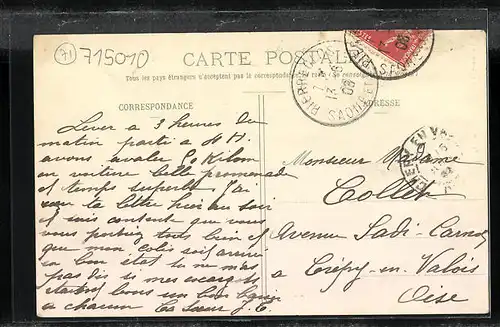 71
715010
CARTE POSTALE
Tous les pays étrangers n'acceptent pas la correspondance au recto
CORRESPONDANCE
ADRESSE
PIERRE
SAÔNE ET LOIRE
08
Lever à 3 heures du
matin parti à
avons avaler 60 Kilom
en voiture belle promenade
et temps superbe J'ai
eu ta lettre hier au soir
et suis content que vous
vous portiez tous bien et
que mon colis soit arrivé
en bon état tu ne m'as
pas dis si mes
étaient bons un bon baiser
à chacun ta sœur J. C.
Monsieur Madame
Collet
Avenue Sadi-Carnot
à Crépy-en-Valois
Oise